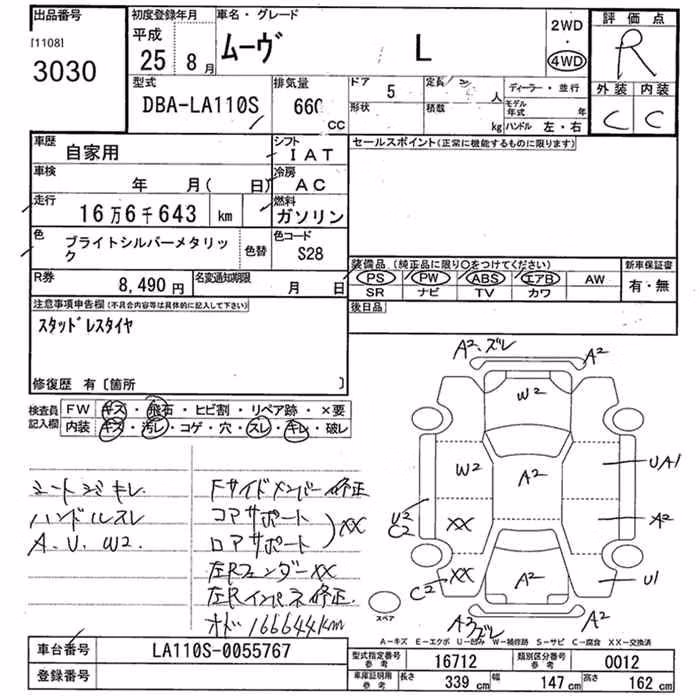 出品番号
[1108]
3030
初度登録年月
平成
25年
8月
車名・グレード
ムーヴ L
2WD
・
4WD
評価点
R
外装 内装
C C
型式
DBA-LA110S
排気量
660
CC
ドア
5
形状
定員
人
積数
kg
ディーラー・並行
モデル年式 年
ハンドル 左・右
車歴
自家用
シフト
IAT
セールスポイント(正常に機能するものに限ります)
車検
年 月( 日)
冷房
AC
走行
16万6千643 km
燃料
ガソリン
色
ブライトシルバーメタリック
色替
色コード
S28
装備品 (純正品に限り○をつけてください)
新車保証書
PS PW ABS エアB AW
SR ナビ TV カワ
有・無
R券
8,490円
名変通知期限
月 日
後日品
注意事項申告欄(不具合内容等は具体的に記入して下さい)
スタッドレスタイヤ
修復歴 有〔箇所 〕
検査員記入欄
FW キズ・飛石・ヒビ割・リペア跡・×要
内装 キズ・汚レ・コゲ・穴・スレ・キレ・破レ
シートコゲキレ
ハンドルスレ
A.U.W2.
Fサイドメンバー修正
コアサポート
ロアサポート
)XX
左Rフェンダー XX
左Rインパネ修正
オド166644km
A2.ズレ
A2
W2
W2
A2
UA1
XX
A2
U2
C2
XX
C2
A2
U1
スペア
A3ズレ
A2
A-キズ E-エクボ U-凹み W-補修跡 S-サビ C-腐食 XX-交換済
車台番号
LA110S-0055767
登録番号
型式指定番号
参考
16712
類別区分番号
参考
0012
車庫証明用
参考
長さ
339 cm
幅
147 cm
高さ
162 cm